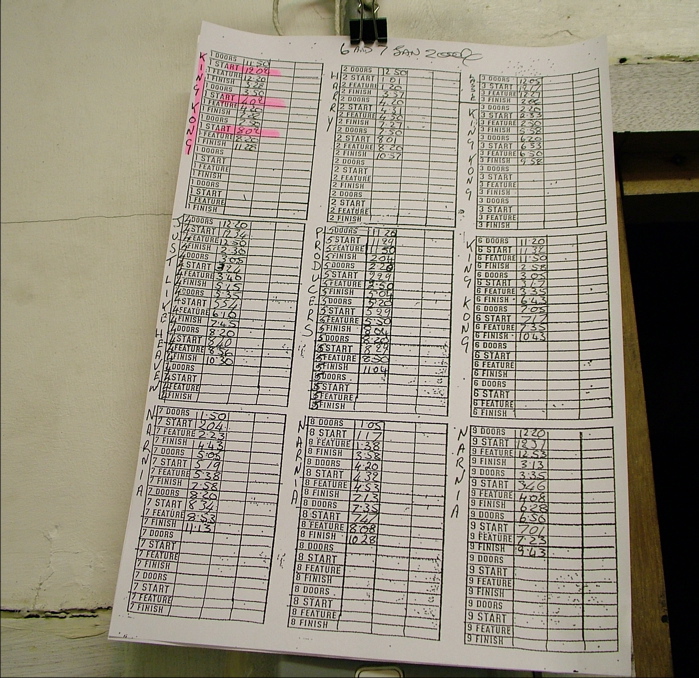 6 AND 7 JAN
KING KONG
1 DOORS 11.50
1 START 12.02
1 FEATURE 12.20
1 FINISH
1 DOORS 3.50
1 START 4.02
1 FEATURE
1 FINISH
1 DOORS
1 START 8.02
1 FEATURE
1 FINISH 11.28
1 DOORS
1 START
1 FEATURE
1 FINISH
1 DOORS
1 START
1 FEATURE
1 FINISH
HARRY
2 DOORS 12.50
2 START 1.01
2 FEATURE 1.20
2 FINISH 3.57
2 DOORS 4.20
2 START 4.31
2 FEATURE 4.50
2 FINISH 7.27
2 DOORS 7.50
2 START 8.01
2 FEATURE 8.20
2 FINISH 10.57
2 DOORS
2 START
2 FEATURE
2 FINISH
2 DOORS
2 START
2 FEATURE
2 FINISH
KING KONG
3 DOORS 12.05
3 START
3 FEATURE
3 FINISH
3 DOORS
3 START 2.33
3 FEATURE
3 FINISH 5.58
3 DOORS 6.20
3 START 6.33
3 FEATURE 6.50
3 FINISH 9.58
3 DOORS
3 START
3 FEATURE
3 FINISH
3 DOORS
3 START
3 FEATURE
3 FINISH
JUST LIKE HEAVEN
4 DOORS 12.20
4 START 12.34
4 FEATURE 12.50
4 FINISH
4 DOORS 3.05
4 START 3.24
4 FEATURE 3.40
4 FINISH 5.15
4 DOORS 5.35
4 START 5.54
4 FEATURE 6.10
4 FINISH 7.45
4 DOORS 8.20
4 START 8.40
4 FEATURE 8.56
4 FINISH 10.30
4 DOORS
4 START
4 FEATURE
4 FINISH
PRODUCERS
5 DOORS 11.20
5 START 11.29
5 FEATURE 11.50
5 FINISH 2.04
5 DOORS 2.20
5 START 2.29
5 FEATURE 2.50
5 FINISH 5.04
5 DOORS 5.20
5 START 5.29
5 FEATURE 5.50
5 FINISH 8.04
5 DOORS 8.20
5 START 8.29
5 FEATURE 8.50
5 FINISH 11.04
5 DOORS
5 START
5 FEATURE
5 FINISH
KING KONG
6 DOORS 11.20
6 START 11.32
6 FEATURE 11.50
6 FINISH 2.58
6 DOORS 3.05
6 START 3.17
6 FEATURE 3.35
6 FINISH 6.43
6 DOORS 7.05
6 START 7.17
6 FEATURE 7.35
6 FINISH 10.43
6 DOORS
6 START
6 FEATURE
6 FINISH
6 DOORS
6 START
6 FEATURE
6 FINISH
NARNIA
7 DOORS 11.50
7 START 2.04
7 FEATURE 2.23
7 FINISH 4.43
7 DOORS 5.05
7 START 5.19
7 FEATURE 5.38
7 FINISH 7.58
7 DOORS 8.20
7 START 8.34
7 FEATURE 8.53
7 FINISH 11.13
7 DOORS
7 START
7 FEATURE
7 FINISH
7 DOORS
7 START
7 FEATURE
7 FINISH
NARNIA
8 DOORS 1.05
8 START 1.17
8 FEATURE 1.38
8 FINISH 3.58
8 DOORS 4.20
8 START 4.32
8 FEATURE 4.53
8 FINISH 7.13
8 DOORS 7.35
8 START 7.47
8 FEATURE 8.08
8 FINISH 10.28
8 DOORS
8 START
8 FEATURE
8 FINISH
8 DOORS
8 START
8 FEATURE
8 FINISH
NARNIA
9 DOORS 12.20
9 START 12.31
9 FEATURE 12.53
9 FINISH 3.13
9 DOORS 3.35
9 START 3.46
9 FEATURE 4.08
9 FINISH 6.28
9 DOORS 6.50
9 START 7.01
9 FEATURE 7.23
9 FINISH 9.43
9 DOORS
9 START
9 FEATURE
9 FINISH
9 DOORS
9 START
9 FEATURE
9 FINISH